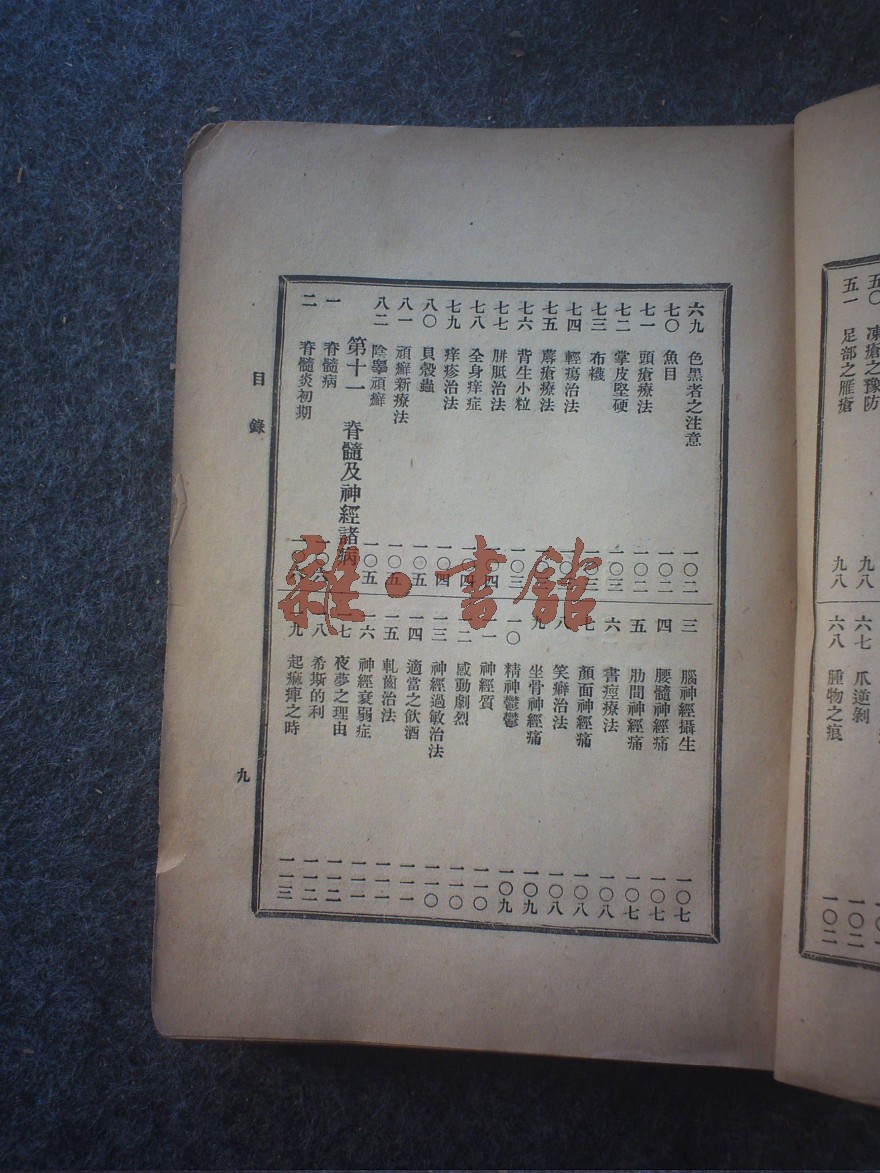 五〇 凍瘡之豫防 九八
五一 足部之雁瘡 九八
六七 爪逆剝 一〇二
六八 腫物之痕 一〇二
六九 色黑者之注意 一〇二
七〇 魚目 一〇二
七一 頭瘡療法 一〇二
七二 掌皮堅硬 一〇三
七三 布襪
七四 輕瘍治法
七五 蓐瘡療法
七六 背生小粒 一〇三
七七 胼胝治法 一〇四
七八 全身痒症 一〇四
七九 痒疹治法 一〇四
八〇 貝殼蟲 一〇五
八一 頑癬新療法 一〇五
八二 陰睾頑癬 一〇五
第十一 脊髓及神經諸病
一 脊髓病 一〇六
二 脊髓炎初期
三 腦神經攝生 一〇七
四 腰髓神經痛 一〇七
五 肋間神經痛 一〇七
六 書痙療法 一〇八
七 顏面神經痛 一〇八
八 笑癖治法 一〇八
九 坐骨神經痛 一〇九
一〇 精神鬱鬱 一〇九
一一 神經質 一一〇
一二 感動劇烈 一一〇
一三 神經過敏治法 一一〇
一四 適當之飲酒 一一一
一五 軋齒治法 一一一
一六 神經衰弱症 一一一
一七 夜夢之理由 一一二
一八 希斯的利 一一二
一九 起痲痺之時 一一三
目錄
九
雜·書館